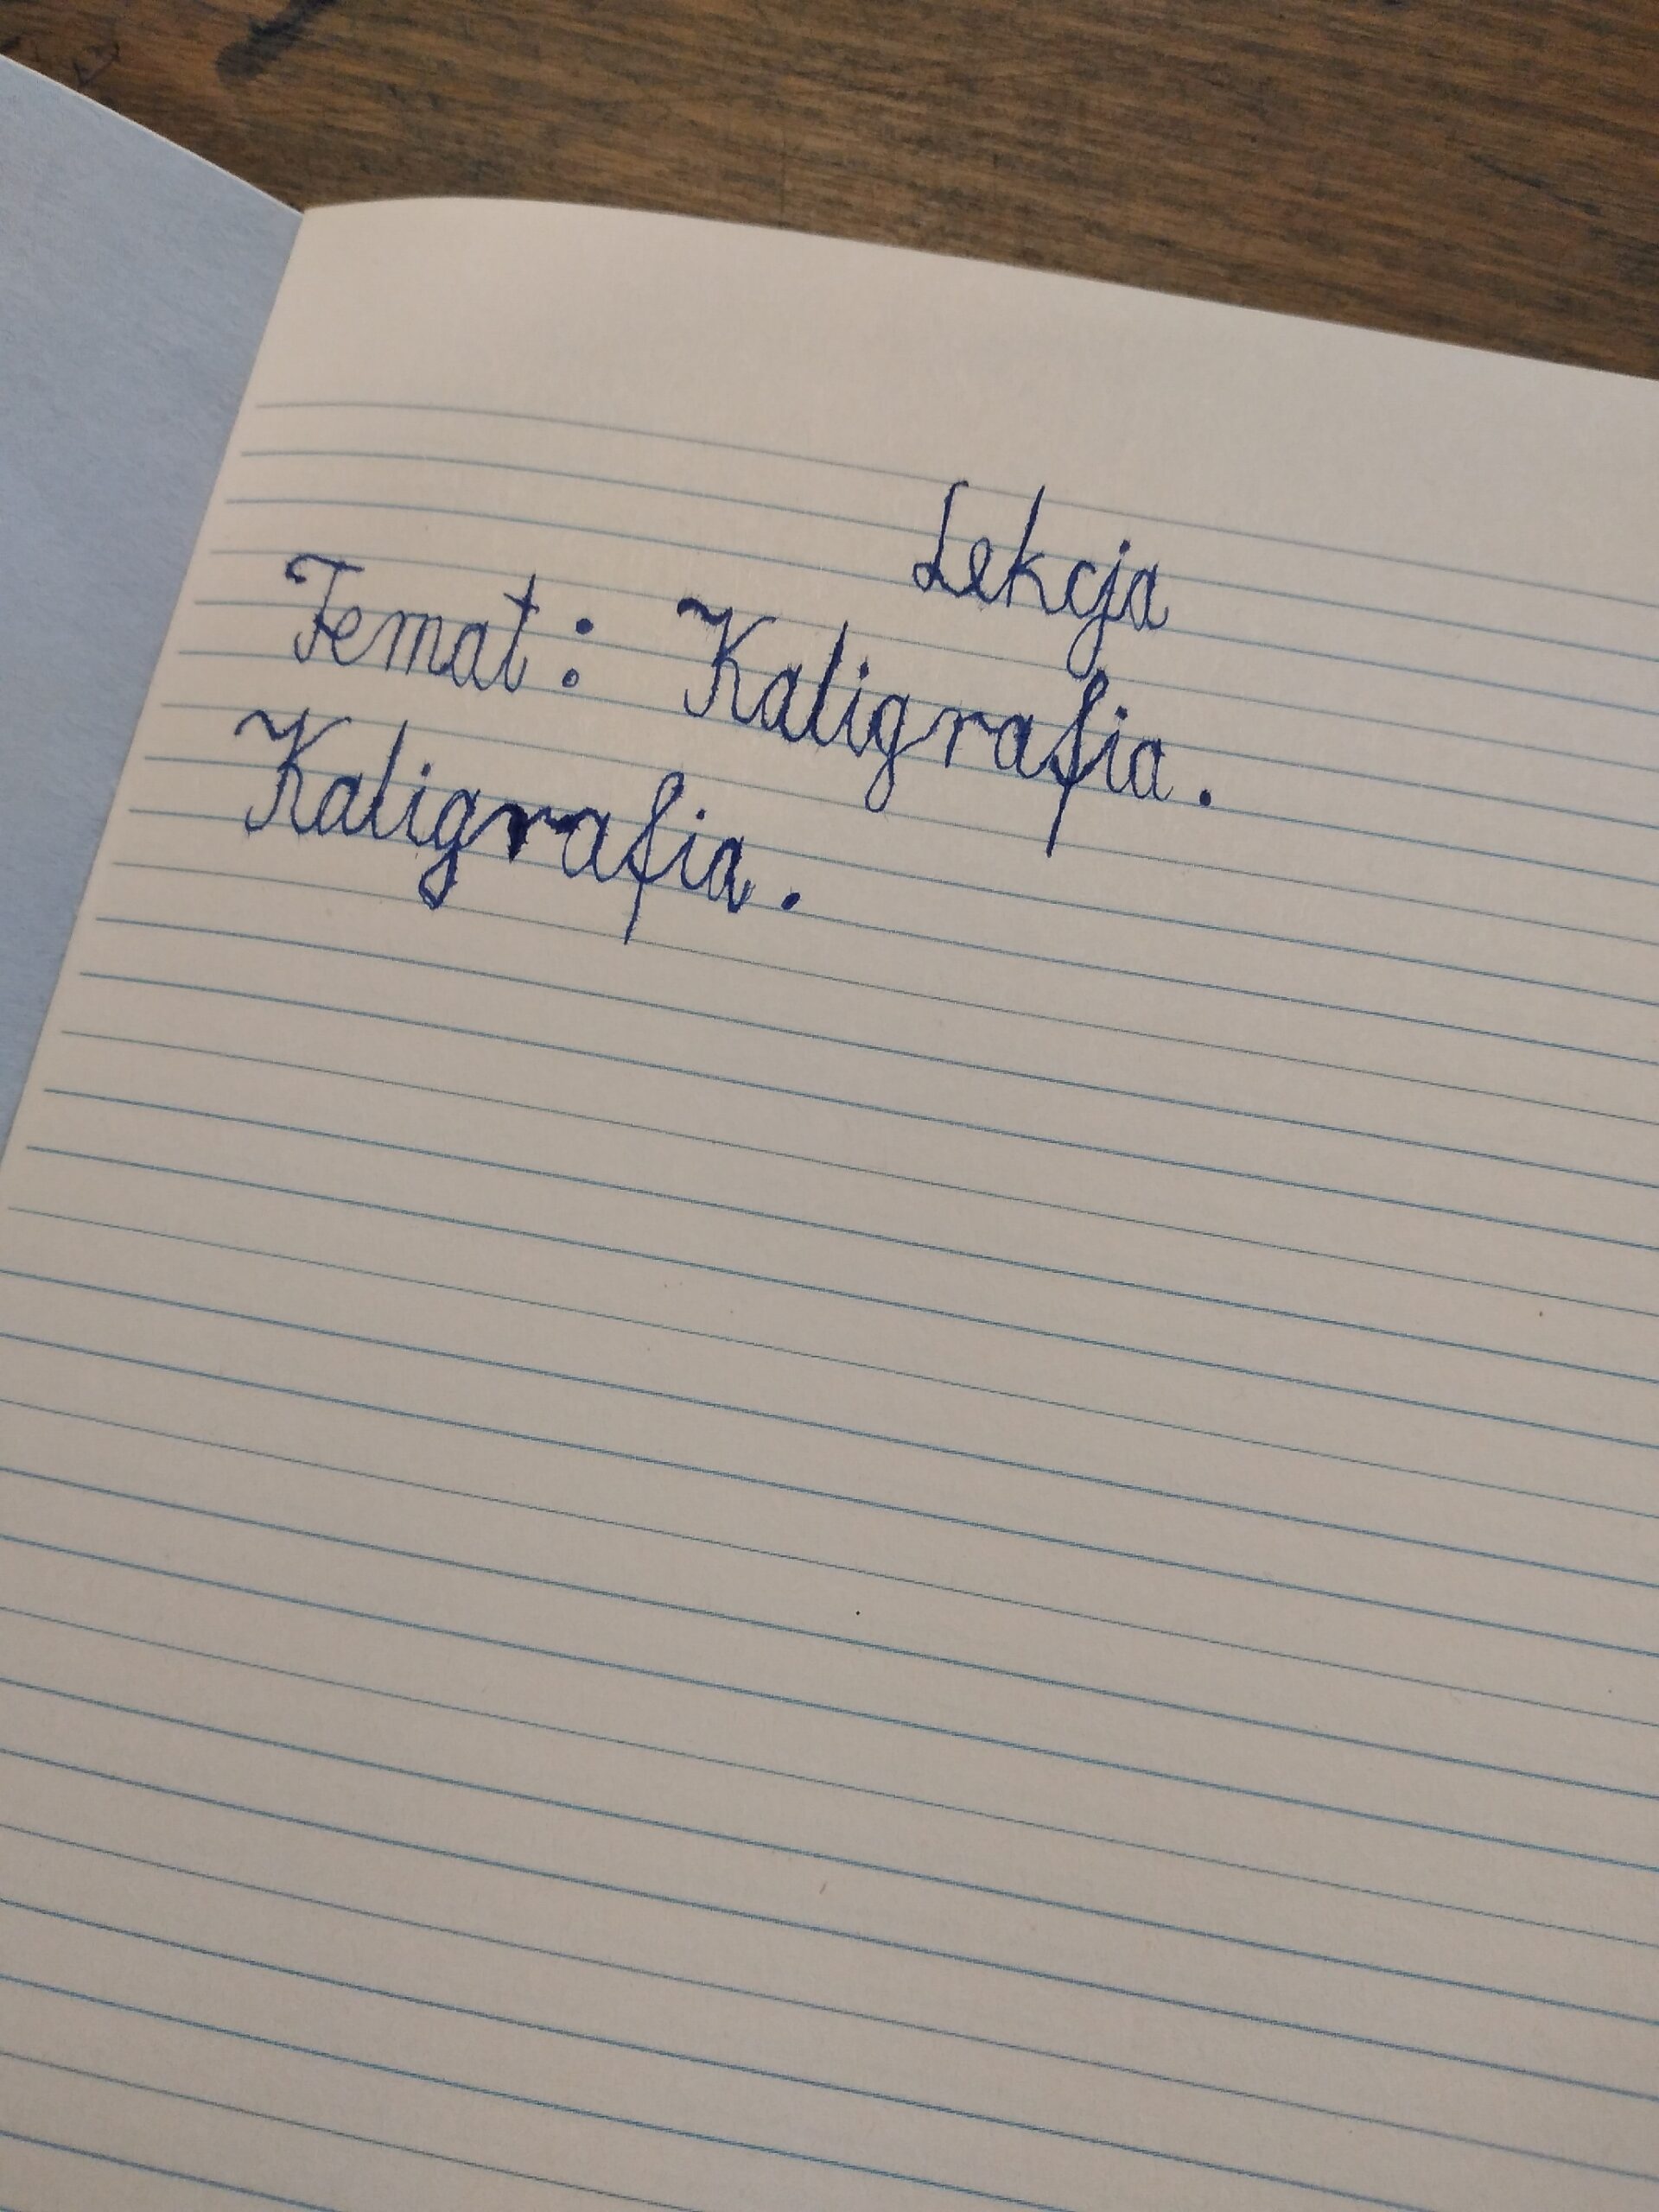 Lekcja
Temat: Kaligrafia.
Kaligrafia.